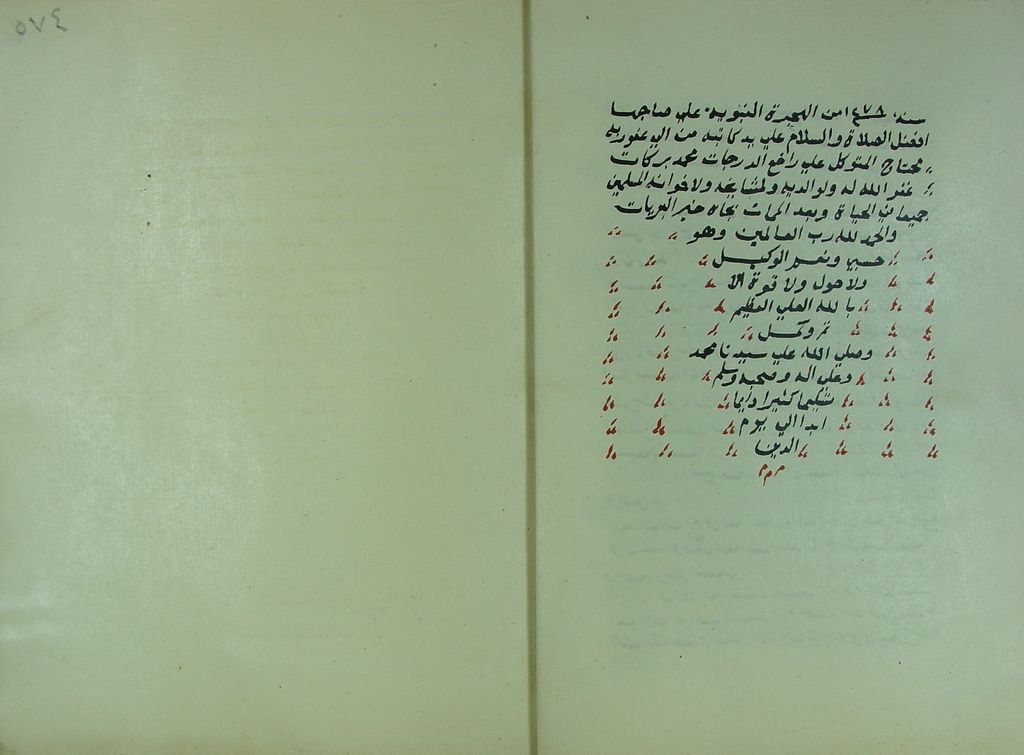 سنة ١٤٧٨ من الهجرة النبوية على صاحبها
افضل الصلاة والسلام على يد كاتبه من الي عفو ربه
محتاج المتوكل علي رافع الدرجات محمد بركات
غفر الله له ولوالديه ولمشايخه ولاخوانه المسلمين
جميعا في الحياة وبعد الممات بجاه خير البريات
والحمد لله رب العالمين وهو
حسبي ونعم الوكيل
ولا حول ولا قوة الا
بالله العلي العظيم
تم وكمل
وصلي الله علي سيدنا محمد
وعلي اله وصحبه وسلم
تسليما كثيرا دايما
ابدا الي يوم
الدين
م م م
٥٧٤